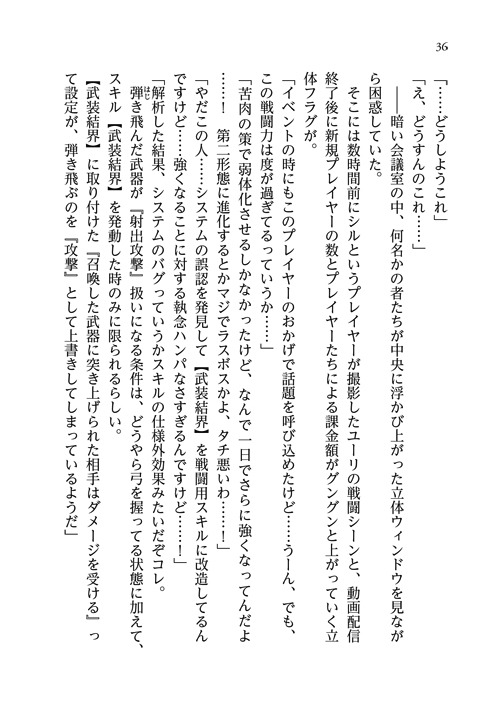 36
「……どうしようこれ」
「え、どうすんのこれ……」
――暗い会議室の中、何名かの者たちが中央に浮かび上がった立体ウィンドウを見なが
ら困惑していた。
そこには数時間前にシルというプレイヤーが撮影したユーリの戦闘シーンと、動画配信
終了後に新規プレイヤーの数とプレイヤーたちによる課金額がグングンと上がっていく立
体フラグが。
「イベントの時にもこのプレイヤーのおかげで話題を呼び込めたけど……うーん、でも、
この戦闘力は度が過ぎてるっていうか……」
「苦肉の策で弱体化させるしかなかったけど、なんで一日でさらに強くなってんだよ
……！　第二形態に進化するとかマジでラスボスかよ、タチ悪いわ……！」
「やだこの人……システムの誤認を発見して【武装結界】を戦闘用スキルに改造してるん
ですけど……強くなることに対する執念ハンパなさすぎるんですけど……！」
「解析した結果、システムのバグっていうかスキルの仕様外効果みたいだぞコレ。
弾き飛んだ武器が『射出攻撃』扱いになる条件は、どうやら弓を握ってる状態に加えて、
スキル【武装結界】を発動した時のみに限られるらしい。
【武装結界】に取り付けた『召喚した武器に突き上げられた相手はダメージを受ける』っ
て設定が、弾き飛ぶのを『攻撃』として上書きしてしまっているようだ」